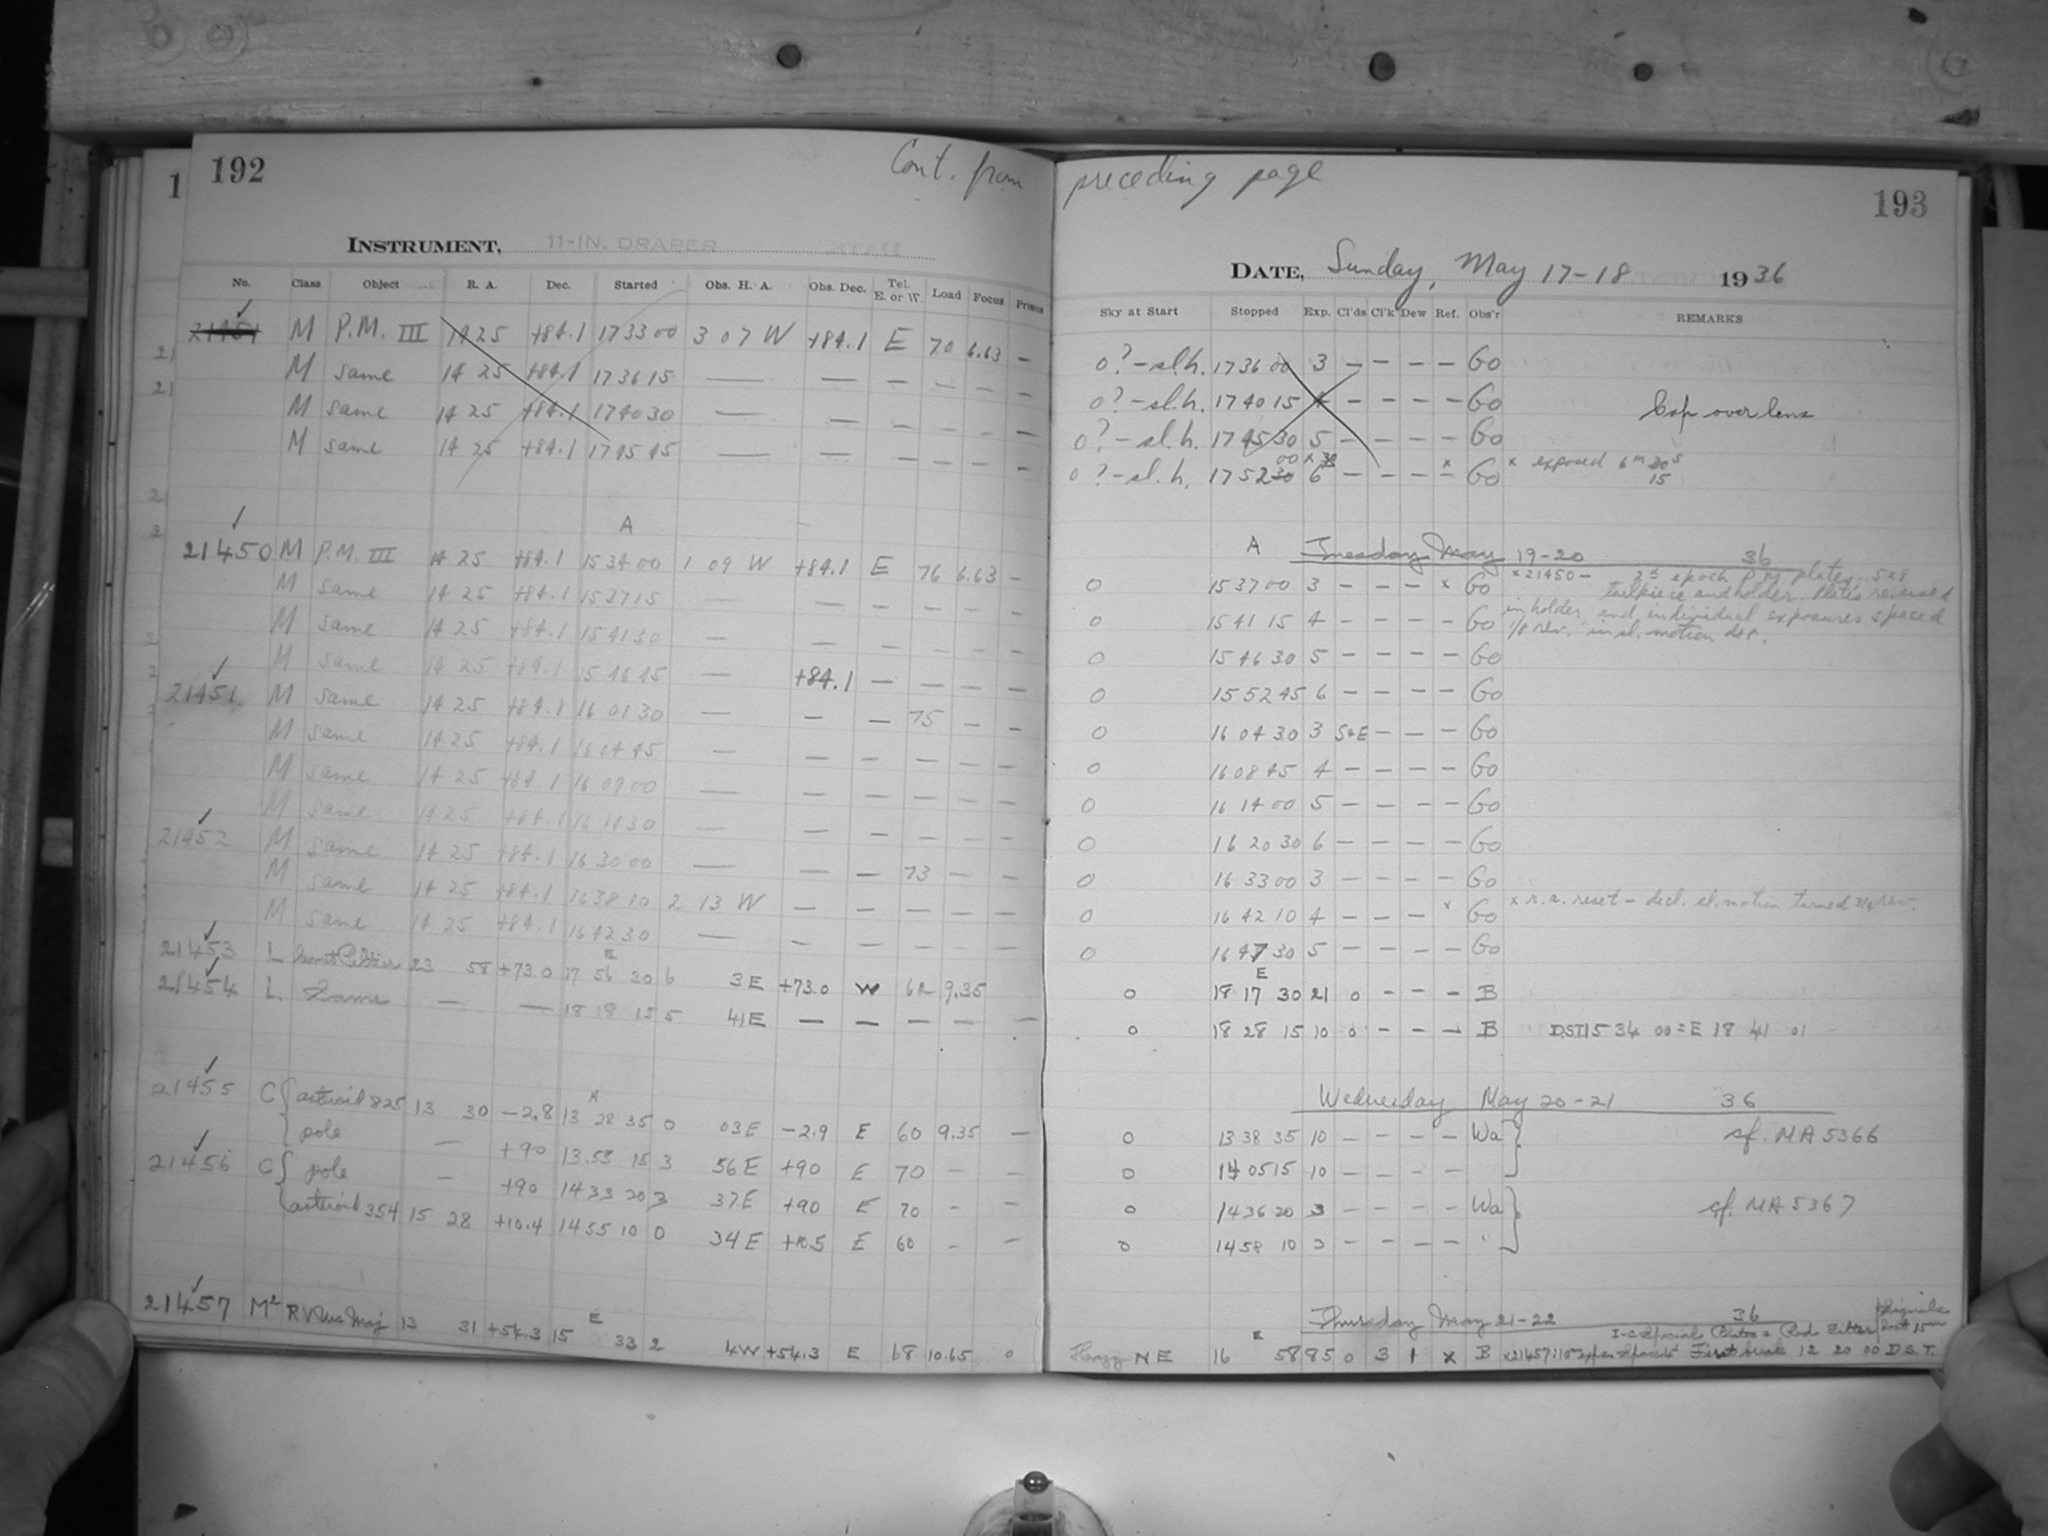 1 192 Cont. from
INSTRUMENT, 11-IN. DRAPER
No. Class Object R. A. Dec. Started Obs. H. A. Obs. Dec. Tel. E. or W. Load Focus Prisms
21451 M P.M. III 14 25 +84.1 17 33 00 3 07 W +84.1 E 70 6.63 –
M same 14 25 +84.1 17 36 15 — — – – – –
M same 14 25 +84.1 17 40 30 — — – – – –
M same 14 25 +84.1 17 45 45 — — – – – –
A
21450 M P.M. III 14 25 +84.1 15 34 00 1 09 W +84.1 E 76 6.63 –
M same 14 25 +84.1 15 37 15 — – – – – –
M same 14 25 +84.1 15 41 30 — – – – – –
M same 14 25 +84.1 15 46 45 — +84.1 – – – –
21451 M same 14 25 +84.1 16 01 30 — – – 75 – –
M same 14 25 +84.1 16 04 45 — – – – – –
M same 14 25 +84.1 16 09 00 — – – – – –
M same 14 25 +84.1 16 14 30 — – – – – –
21452 M same 14 25 +84.1 16 30 00 — – – 73 – –
M same 14 25 +84.1 16 38 10 2 13 W – – – – –
M same 14 25 +84.1 16 42 30 — – – – – –
E
21453 L Comet Peltier 23 58 +73.0 17 56 30 6 3 E +73.0 W 62 9.35
21454 L Same — — 18 18 15 5 41 E — – – – –
A
21455 C { asteroid 825 13 30 –2.8 13 28 35 0 03 E –2.9 E 60 9.35 –
pole — +90 13.53 15 3 56 E +90 E 70 – –
21456 C { pole — +90 14 33 20 3 37 E +90 E 70 – –
asteroid 354 15 28 +10.4 14 55 10 0 34 E +10.5 E 60 – –
E
21457 M² R V Urs Maj 13 31 +54.3 15 33 2 4 W +54.3 E 68 10.65 0
preceding page 193
DATE, Sunday, May 17-18 1936
Sky at Start Stopped Exp. Cl'ds Cl'k Dew Ref. Obs'r REMARKS
0? – sl.h. 17 36 00 3 – – – – Go
0? – sl.h. 17 40 15 4 – – – – Go Cap over lens
0? – sl.h. 17 45 30 5 – – – – Go
00 x 30 x
0? – sl.h. 17 52 30 6 – – – – Go x exposed 6m 30s
15
A Tuesday May 19-20 36
0 15 37 00 3 – – – x Go x 21450 – 2nd epoch P.M. plates. 5x8
0 15 41 15 4 – – – – Go tailpiece and holder. Plates reversed
0 15 46 30 5 – – – – Go in holder, and individual exposures spaced
0 15 52 45 6 – – – – Go 1/8 rev. in sl. motion dec.
0 16 04 30 3 S+E – – – Go
0 16 08 45 4 – – – – Go
0 16 14 00 5 – – – – Go
0 16 20 30 6 – – – – Go
0 16 33 00 3 – – – – Go
0 16 42 10 4 – – – x Go x r.a. reset – decl. sl. motion turned 3/4 rev.
0 16 47 30 5 – – – – Go
E
0 18 17 30 21 0 – – – B
0 18 28 15 10 0 – – – B D.S.T. 15 34 00 = E 18 41 01
Wednesday May 20-21 36
0 13 38 35 10 – – – – Wa } cf. MA 5366
0 14 05 15 10 – – – –
0 14 36 20 3 – – – – Wa } cf. MA 5367
0 14 58 10 3 – – – – "
Thursday May 21-22 36
I-C Special Red
E
Hazy NE 16 58 85 0 3 1 x B x 21457: First break 12 20 00 D.S.T.